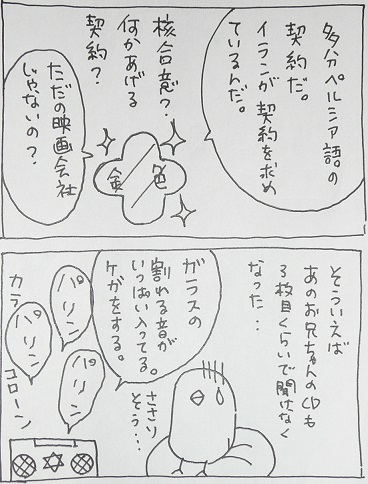 多分ペルシア語の
契約だ。
イランが契約を求め
ているんだ。
核合意？
何かあげる
契約？
金色
ただの映画会社
じゃないの？
そういえば
あのお兄ちゃんのCDも
3枚目くらいで聞けなく
なった・・
ガラスの
割れる音が
いっぱい入ってる。
ケガをする。
ささり
そう・・・
パリン
パリン
パリン
カラ
コローン